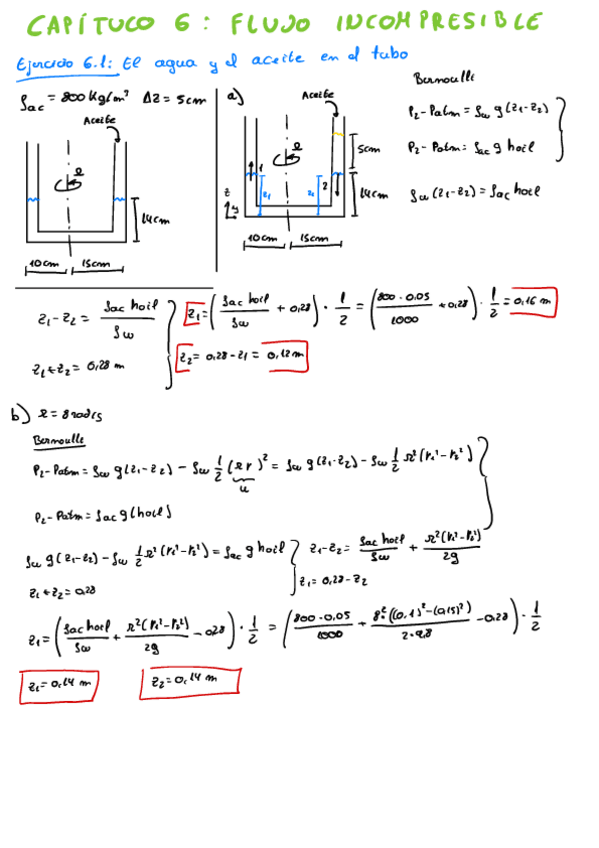 CAPÍTUCO 6: FLUJO INCOMPRESIBLE
Ejercicio 6.1: El agua y el aceite en el tubo
ρac = 800 kg/m³ ΔZ = 5cm
Aceite
Ω
14cm
10cm 15cm
a)
Aceite
Ω
5cm
1
2
z1
z2
14cm
z
y
10cm 15cm
Bernoulli
P2-Patm = ρw g(z1-z2)
P2-Patm = ρac g hoil
ρw(z1-z2) = ρac hoil
z1-z2 = ρac hoil / ρw
z1+z2 = 0,28 m
z1 = (ρac hoil / ρw + 0,28) · 1/2 = (800·0.05 / 1000 + 0,28) · 1/2 = 0,16 m
z2 = 0,28 - z1 = 0,12 m
b) Ω = 8 rad/s
Bernoulli
P2-Patm = ρw g(z1-z2) - ρw 1/2 (Ωr)² = ρw g(z1-z2) - ρw 1/2 Ω²(r1²-r2²)
u
P2-Patm = ρac g(hoil)
ρw g(z1-z2) - ρw 1/2 Ω²(r1²-r2²) = ρac g hoil
z1+z2 = 0,28
z1-z2 = ρac hoil / ρw + Ω²(r1²-r2²) / 2g
z1 = 0,28 - z2
z1 = (ρac hoil / ρw + Ω²(r1²-r2²) / 2g - 0,28) · 1/2 = (800·0,05 / 1000 + 8²((0,1)²-(0,15)²) / 2·9,8 - 0,28) · 1/2
z1 = 0,14 m
z2 = 0,14 m